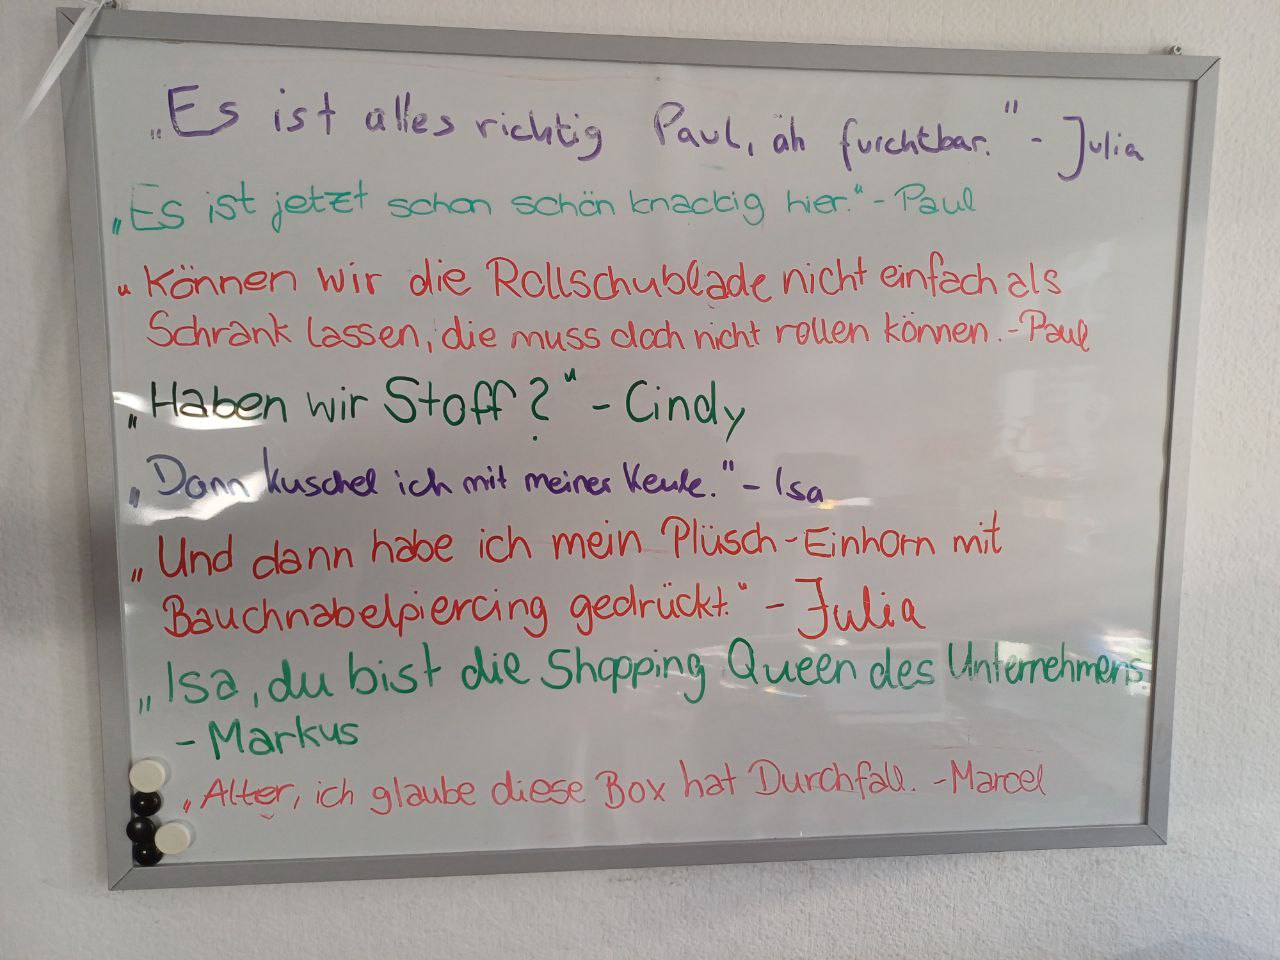 „Es ist alles richtig Paul, äh furchtbar." - Julia
„Es ist jetzt schon schön knackig hier." - Paul
„Können wir die Rollschublade nicht einfach als
Schrank lassen, die muss doch nicht rollen können. - Paul
„Haben wir Stoff?" - Cindy
„Dann kuschel ich mit meiner Keule." - Isa
„Und dann habe ich mein Plüsch-Einhorn mit
Bauchnabelpiercing gedrückt." - Julia
„Isa, du bist die Shopping Queen des Unternehmens
- Markus
„Alter, ich glaube diese Box hat Durchfall. - Marcel